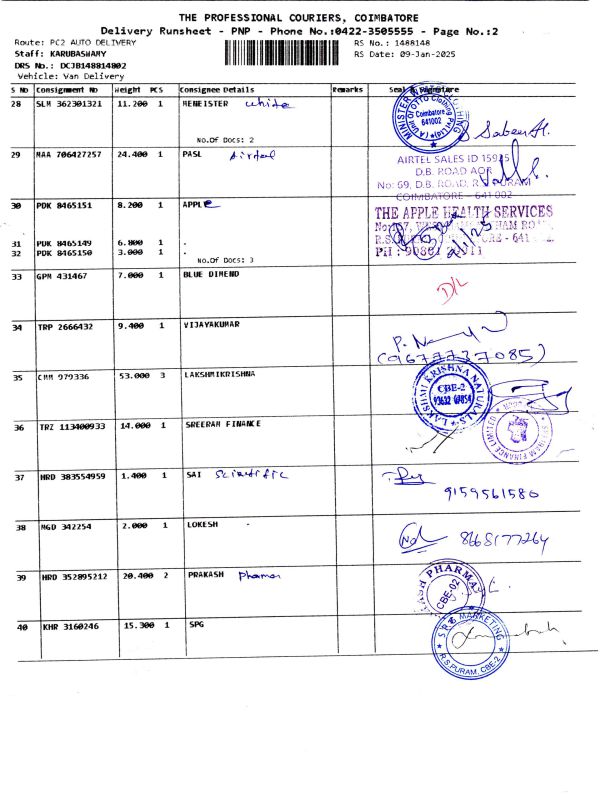 THE PROFESSIONAL COURIERS, COIMBATORE
Delivery Runsheet - PNP - Phone No.:0422-3505555 - Page No.:2
Route: PC2 AUTO DELIVERY
RS No.: 1488148
Staff: KARUBASHAMY
RS Date: 09-Jan-2025
DRS No.: DCJB148814802
Vehicle: Van Delivery
S No Consignment No Weight PCS Consignee Details Remarks Seal & Signature
28 SLM 362301321 11.200 1 MENEISTER white
No.Of Docs: 2
MINISTER WHITE CLOTHING
(A Unit of OTTO Clothing Pvt Ltd)
Coimbatore
641002
29 MAA 706427257 24.400 1 PASL Airtel
AIRTEL SALES ID 15925
D.B. ROAD AOR
No: 69, D.B. ROAD, R.S. PURAM
COIMBATORE - 641 002
30 PDK 8465151 8.200 1 APPLE
THE APPLE HEALTH SERVICES
31 PDK 8465149 6.800 1 .
32 PDK 8465150 3.000 1 .
No.Of Docs: 3
33 GPM 431467 7.000 1 BLUE DIMEND
D/L
34 TRP 2666432 9.400 1 VIJAYAKUMAR
(9677737085)
35 CMM 979336 53.000 3 LAKSHMIKRISHNA
LAKSHMI KRISHNA NATURALS
CBE-2
36 TRZ 113400933 14.000 1 SREERAM FINANCE
SHRIRAM FINANCE LIMITED
37 HRD 383554959 1.400 1 SAI Scientific
9159561580
38 MGD 342254 2.000 1 LOKESH
8668177264
39 HRD 352895212 20.400 2 PRAKASH Pharma
PHARMA
CBE-02
40 KHR 3160246 15.300 1 SPG
MARKETING
R.S.PURAM, CBE-2